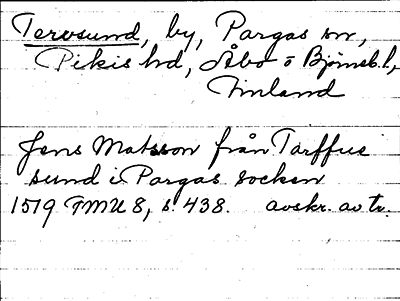 Tervsund, by, Pargas sn,
Pikis hd, Åbo o Björneb. l,
Finland
Jens Matsson från Tarffue
sund i Pargas socken
1519 FMU 8, s. 438. avskr. av tr.